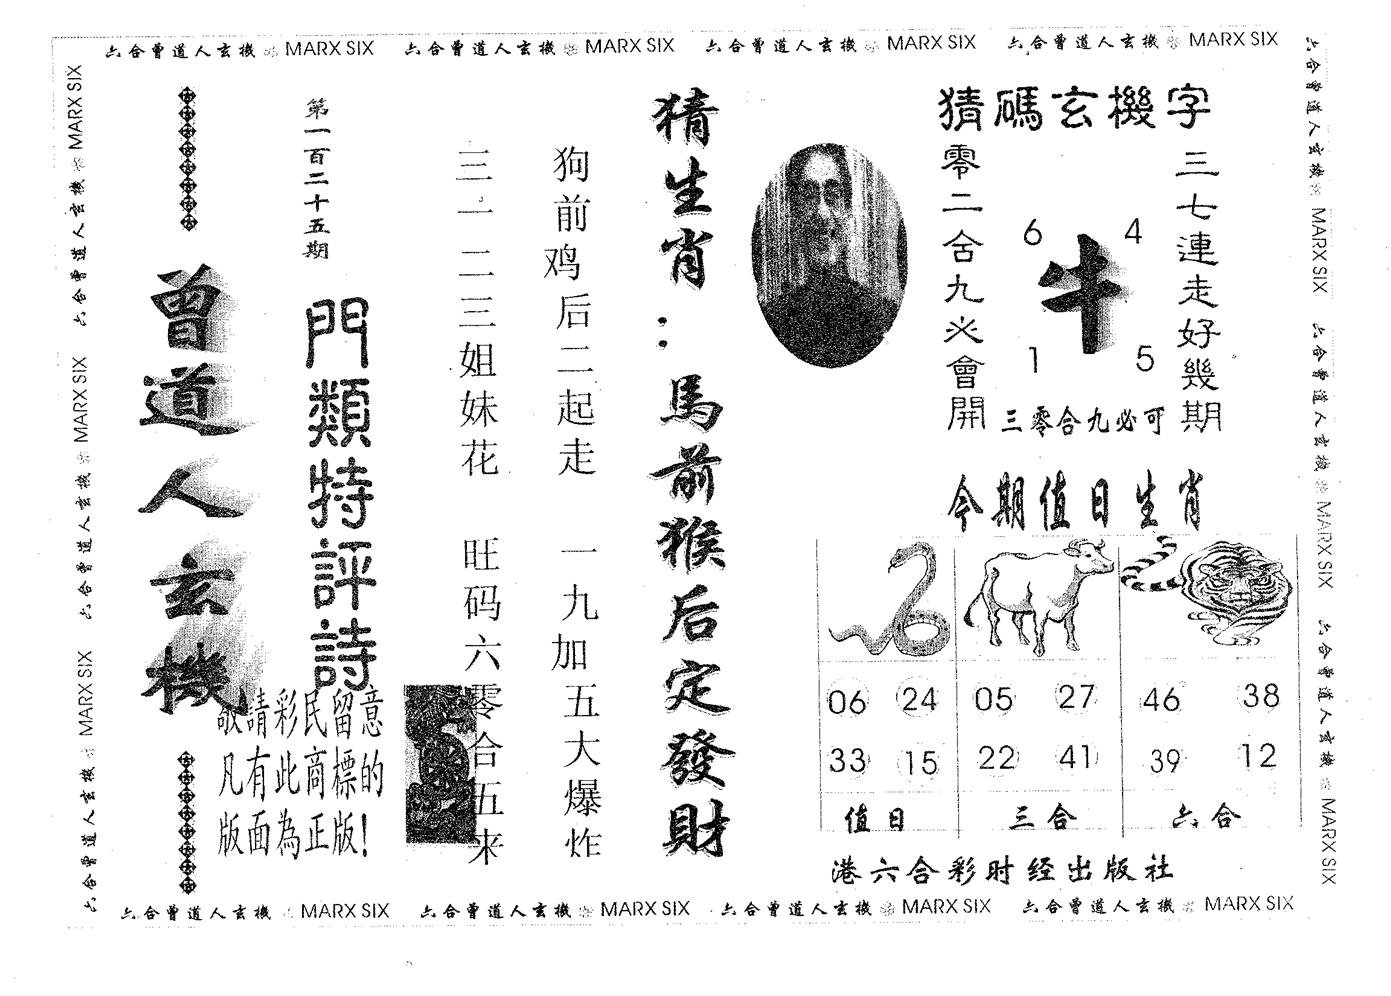 六合曾道人玄機 MARX SIX 六合曾道人玄機 MARX SIX 六合曾道人玄機 MARX SIX 六合曾道人玄機 MARX SIX
六合曾道人玄機 MARX SIX 六合曾道人玄機 MARX SIX 六合曾道人玄機 MARX SIX
曾道人玄機
第一百二十五期
門類特評詩
敬請彩民留意
凡有此商標的
版面為正版!
狗前鸡后二起走 一九加五大爆炸
三一二三姐妹花 旺码六零合五来
猜生肖:馬前猴后定發財
猜碼玄機字
三七連走好幾期
零二舍九必會開
6 4
牛
1 5
三零合九必可
今期值日生肖
06 24 05 27 46 38
33 15 22 41 39 12
值日 三合 六合
港六合彩时经出版社
六合曾道人玄機 MARX SIX 六合曾道人玄機 MARX SIX 六合曾道人玄機 MARX SIX
六合曾道人玄機 MARX SIX 六合曾道人玄機 MARX SIX 六合曾道人玄機 MARX SIX 六合曾道人玄機 MARX SIX